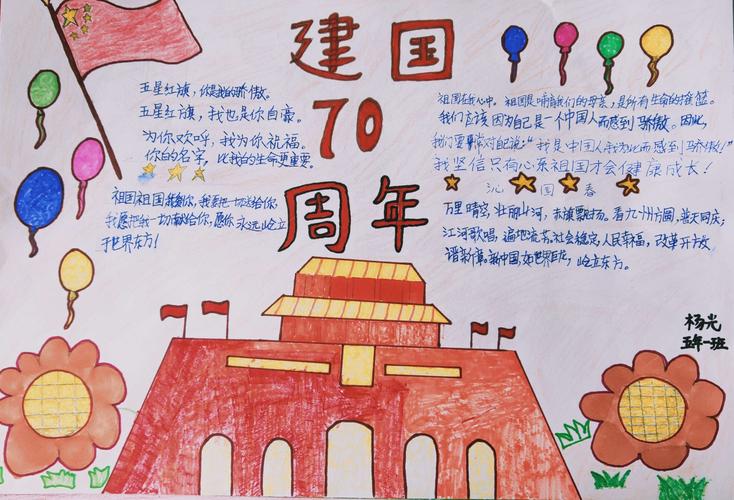 建国
70
周年
五星红旗，你是我的骄傲。
五星红旗，我也是你自豪。
为你欢呼，我为你祝福。
你的名字，比我的生命更重要。
祖国祖国我爱你，我要把一切给你，
我愿把我一切献给你，愿你永远屹立
于世界东方！
祖国在我心中。祖国是哺育我们的母亲，是所有生命的摇篮。
我们应该因为自己是一个中国人而感到骄傲。因此，
我们要常对自己说："我是中国人我为此而感到骄傲！"
我坚信只有心系祖国才会健康成长！
沁 国 春
万里晴空，壮丽山河，赤旗飘扬。看九州方圆，普天同庆；
江河歌唱，遍地流芳，社会稳定，人民幸福，改革开放
谱新章。新中国，如世界巨龙，屹立东方。
杨光
五年一班